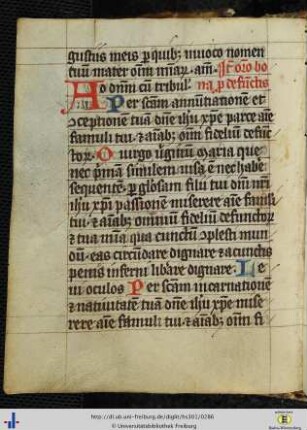 gustus meis p quib; inuoco nomen
tuu mater oim miar. am. It oro bo
Ad dnm cu tribul. na p defuctis
Per scam annutiatione et
ceptione tua dne ihu xpe parce aie
famuli tui et aiab; oim fideliu defuc
tor. O uirgo uginu maria que
nec pma similem uisa e nec habe
sequente p glosam filii tui dni nri
ihu xpi passione miserere aie famli
tui et aiab; omniu fideliu defunctor
et tua mia qua cunctu plesti mun
du eas circudare dignare et a cunctis
penis inferni libare dignare. Le
ui oculos Per scam incarnatione
et natiuitate tua dne ihu xpe mise
rere aie famuli tui et aiab; oim fi
http://dl.ub.uni-freiburg.de/diglit/hs302/0286
© Universitätsbibliothek Freiburg
Baden-Württemberg